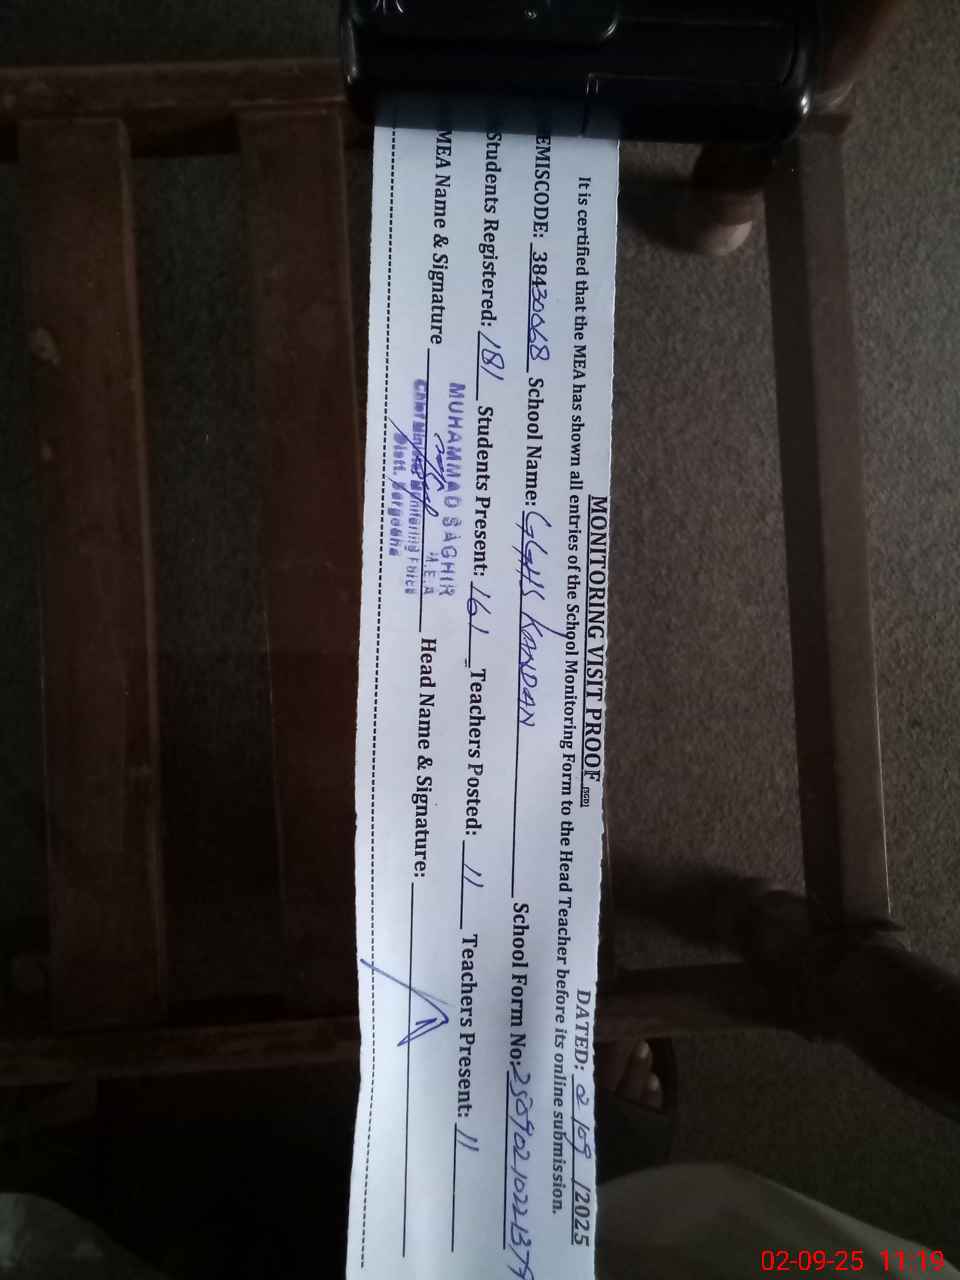 MONITORING VISIT PROOF (SGD)
DATED: 02/09/2025
It is certified that the MEA has shown all entries of the School Monitoring Form to the Head Teacher before its online submission.
EMISCODE: 38430068 School Name: GGHS KANDAN School Form No:
Students Registered: 181 Students Present: 161 Teachers Posted: 11 Teachers Present: 11
MEA Name & Signature Head Name & Signature:
MUHAMMAD SAGHIR
M.E.A
Chief Minister Monitoring Force
Distt. Sargodha
02-09-25 11:19